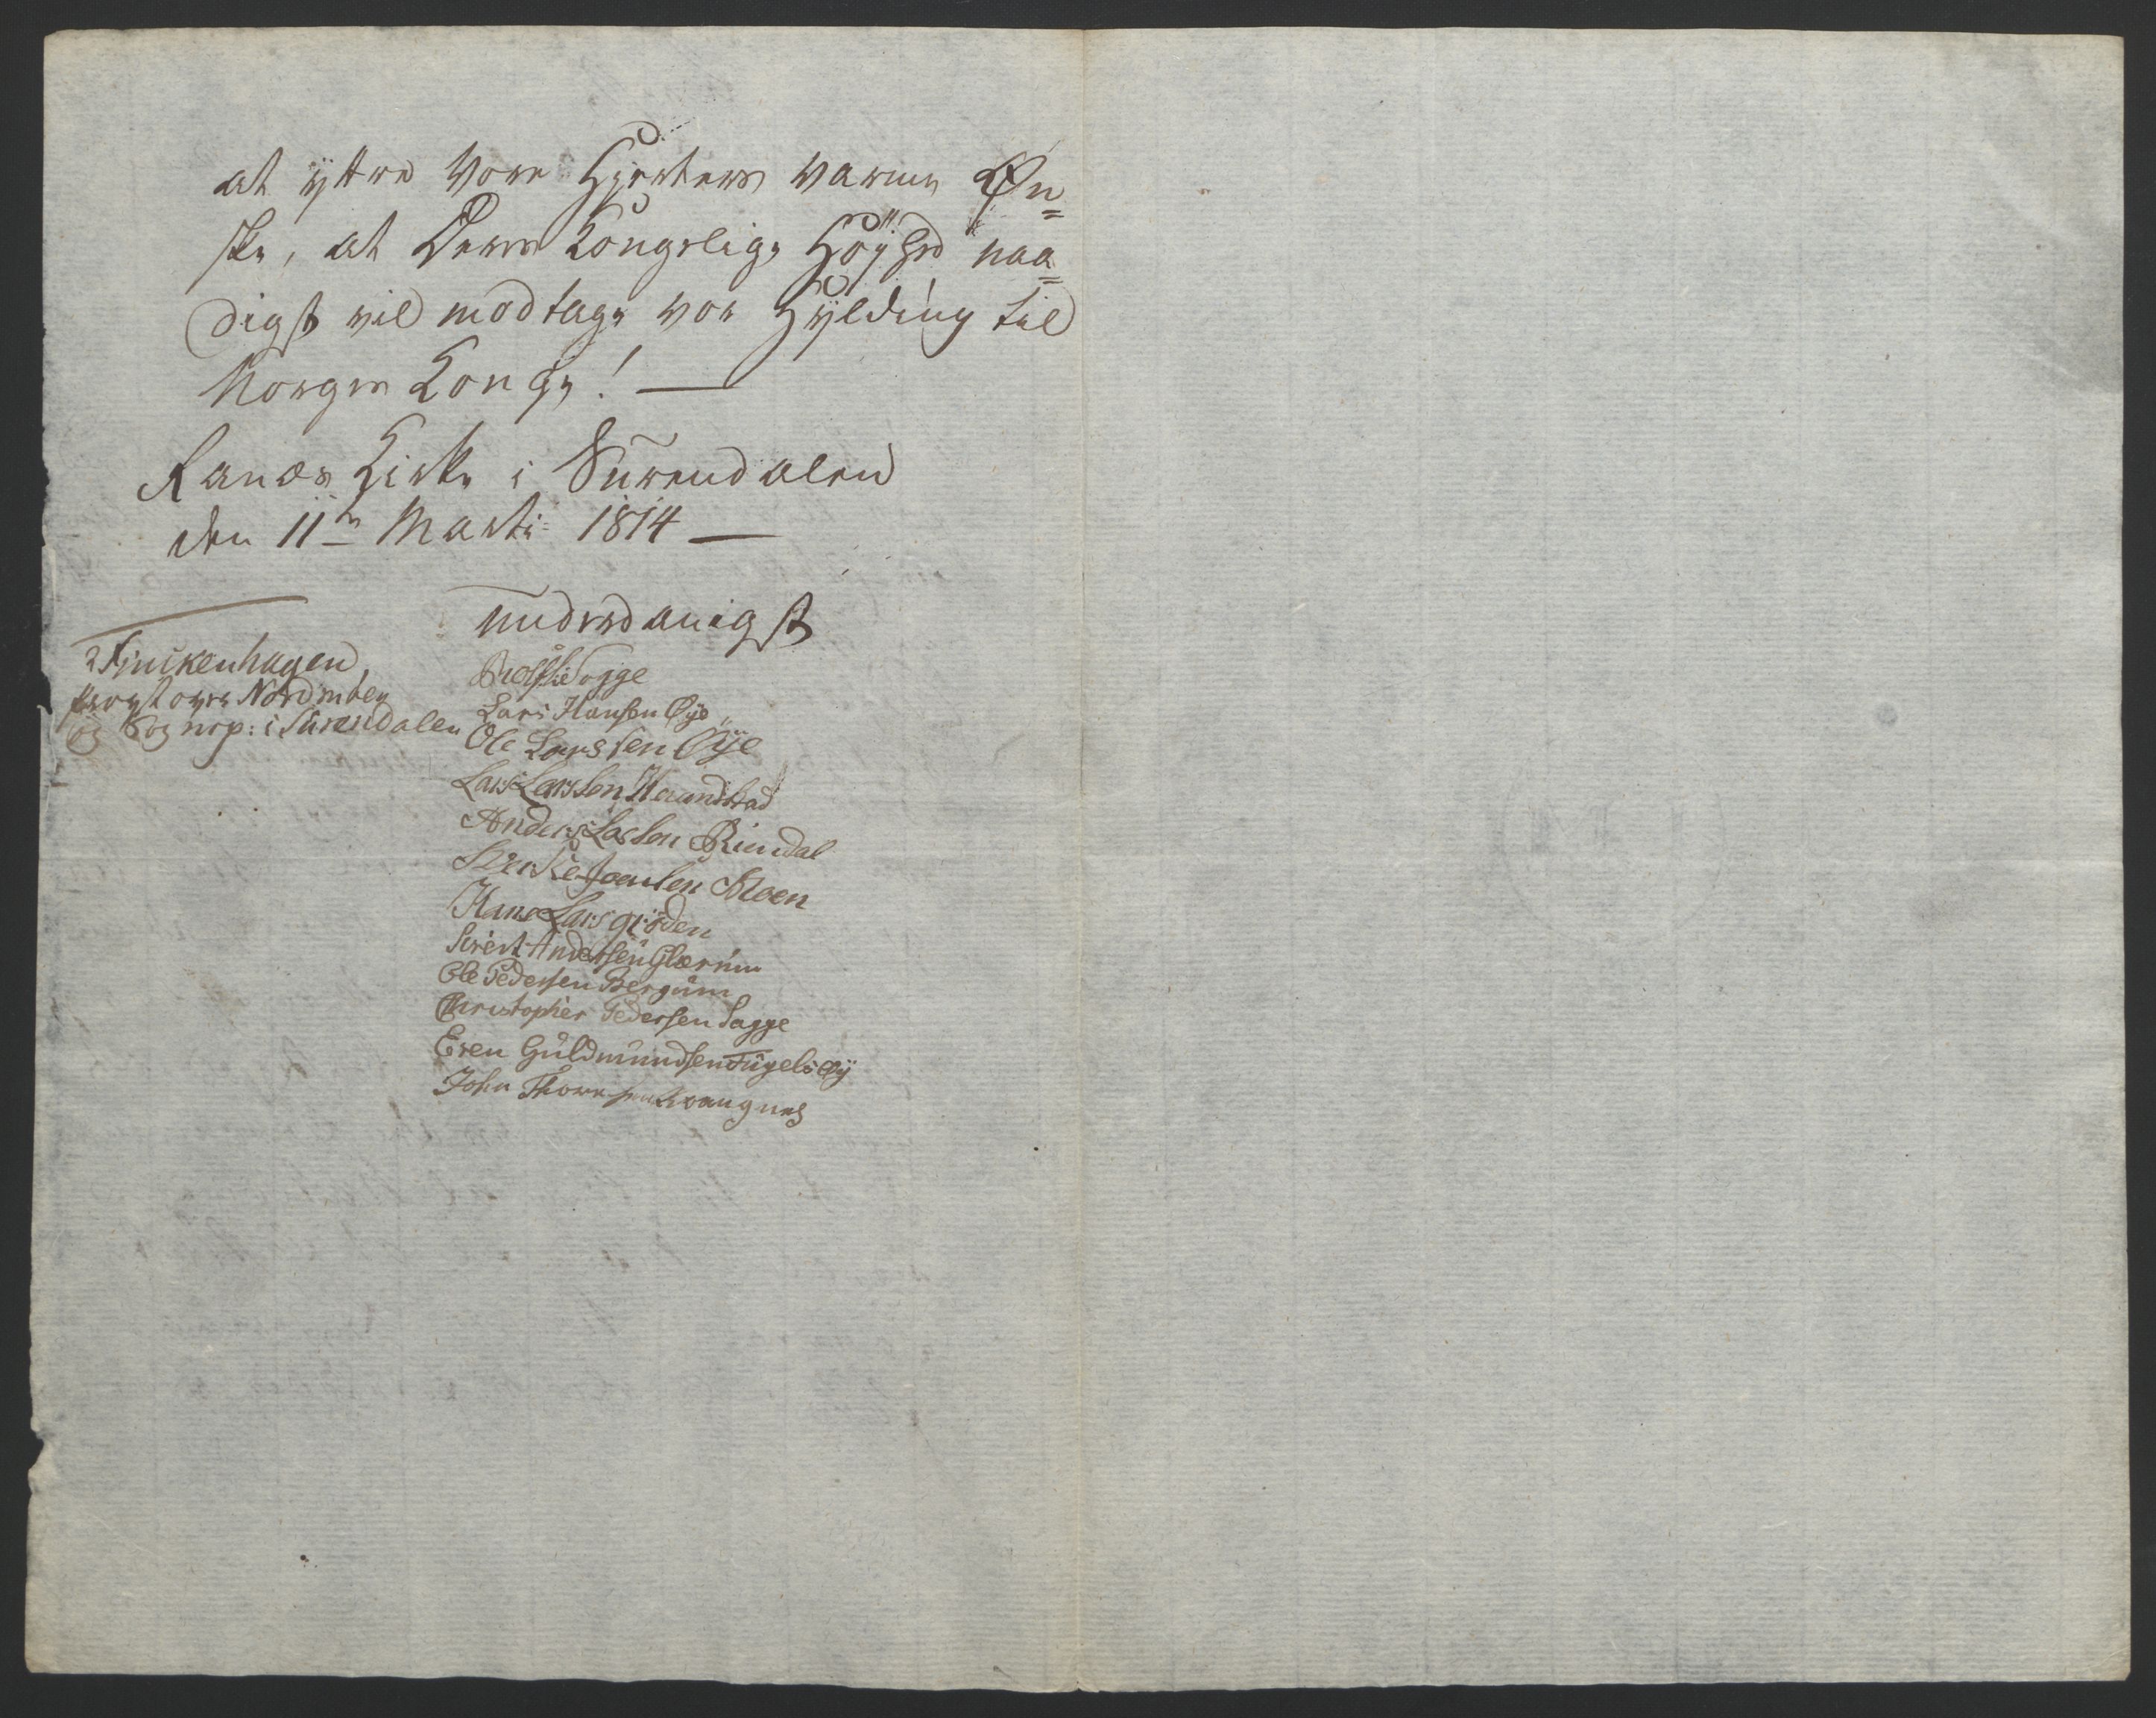 at ÿttre Vore Hjerters varme Øn=
ske, at Deres Kongelige Höÿhed naa=
digst vil modtage vor Hÿlding til
Norges Konge! —
Ranæs Kirke i Surendalen
den 11te Marti: 1814 —
underdanigst
Finckenhagen,
Provst over Nordmøer
og Sognep: i Surendalen
Sogge
Lars Hansen Øÿe
Ole Larssen Øÿe
Lars Larssen Haandstad
Anders Larsen Rindal
Moen
Hans Lars
Sivert Andersen Glærum
Ole Pedersen Bergum
Christopher Pedersen Sagge
Even Guldmundsen Fugelsøÿ
John Kvangnes